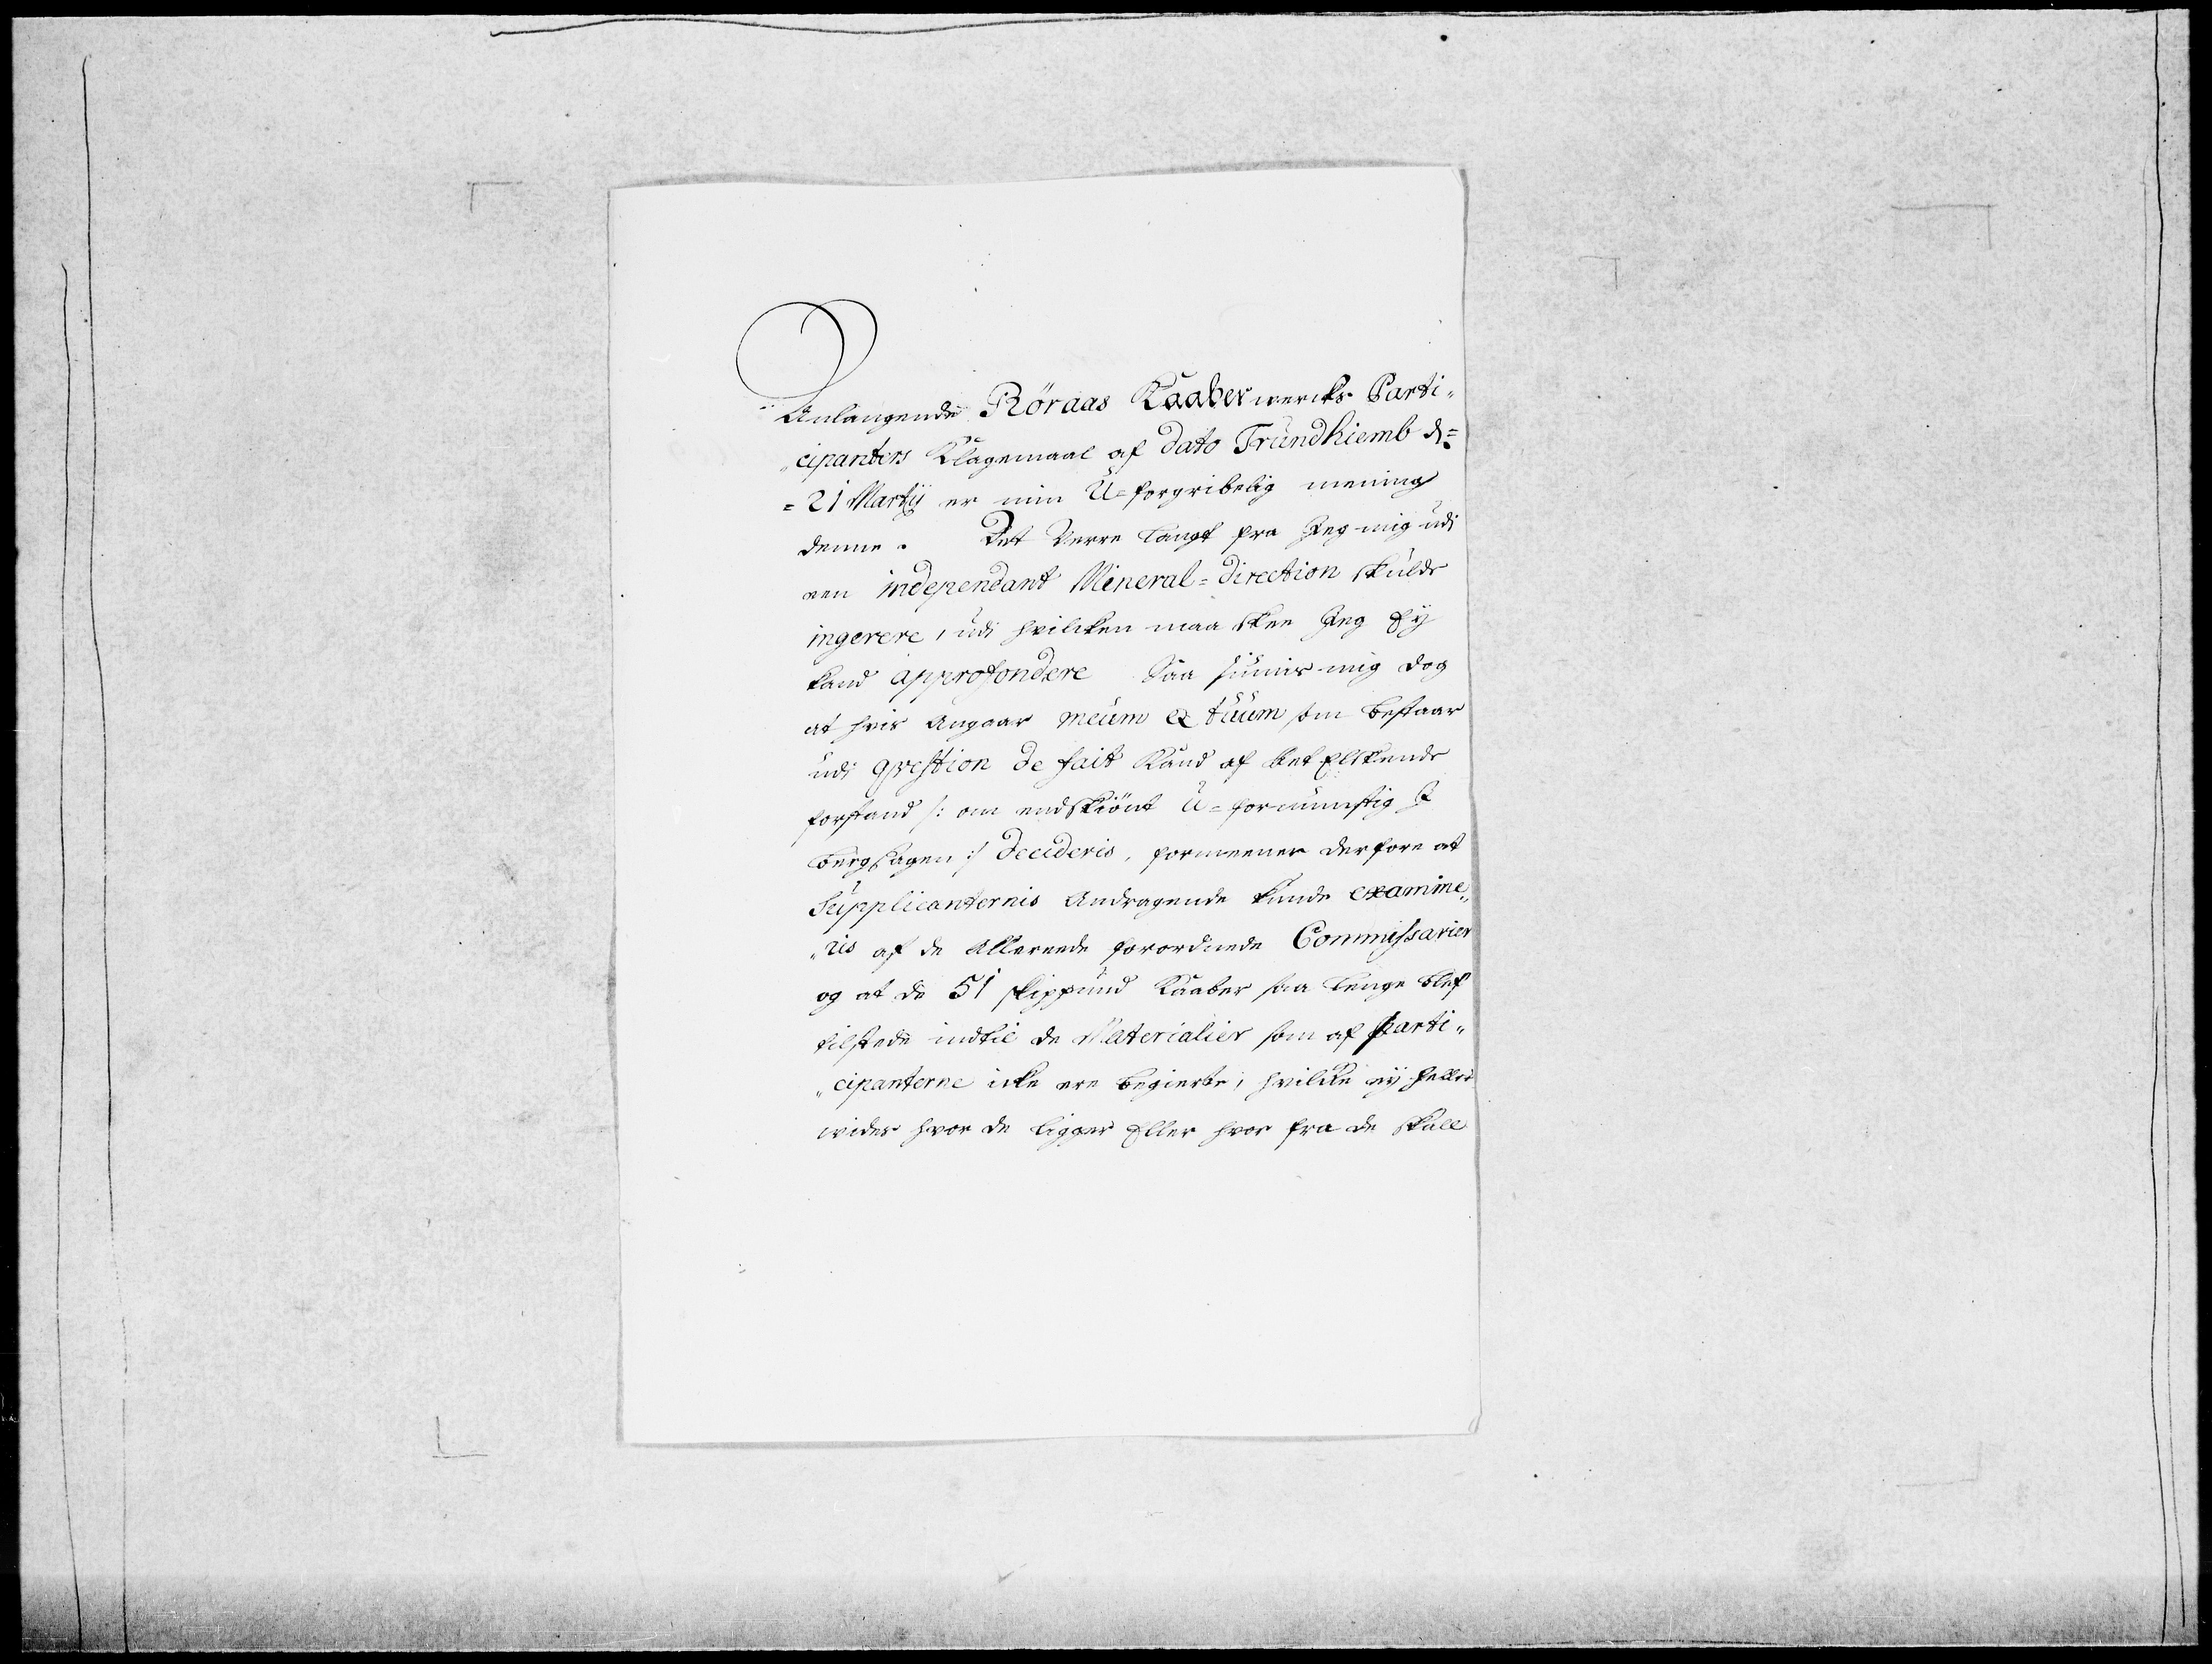 Anlangende Röraas Kaaberwercks Parti„
„cipanters Klagemaal af dato Trundhiemb d=
=21 Martij er min U=forgribelig mening
denne. Det Verre langt fra Jeg mig udi
een independant Mineral=direction skulde
ingerere, udi hvilcken maa skee Jeg Ey
kand approfondere Saa siunis mig dog
at hvis Angaar meum et tuum som bestaar
udi qvestion de fait Kand af Ret Elskende
forstand /: om endskiönt U=fornunftig J
bergsagen :/ decideris, formeener derfore at
Supplicanternis Andragende kunde examine„
„ris af de Allereede forordnede Commissarier
og at de 51 skippund Kaaber saa lenge blef
tilstede indtil de Materialier som af Parti„
„cipanterne icke ere begierte, hvilcke ej heller
wides hvor de ligger Eller hvor fra de skall